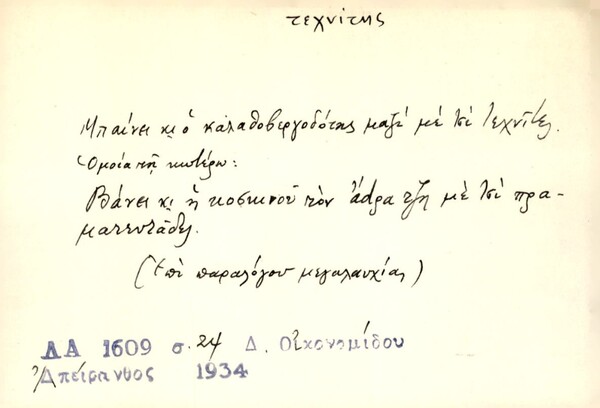 τεχνίτης
Μπαίνει κι ὁ καλαθοβεργοδότης μαζὶ μὲ τσὶ τεχνῖτες.
Ὁμοία τῇ κωτέρω:
Βάνει κι ἡ κοσκινοῦ τὸν ἄdρα τζη μὲ τσὶ πρα-
ματευτάδες.
(Ἐπὶ παραλόγου μεγαλαυχίας)
ΛΑ 1609 σ. 24 Δ. Οἰκονομίδου
Ἀπείρανθος 1934